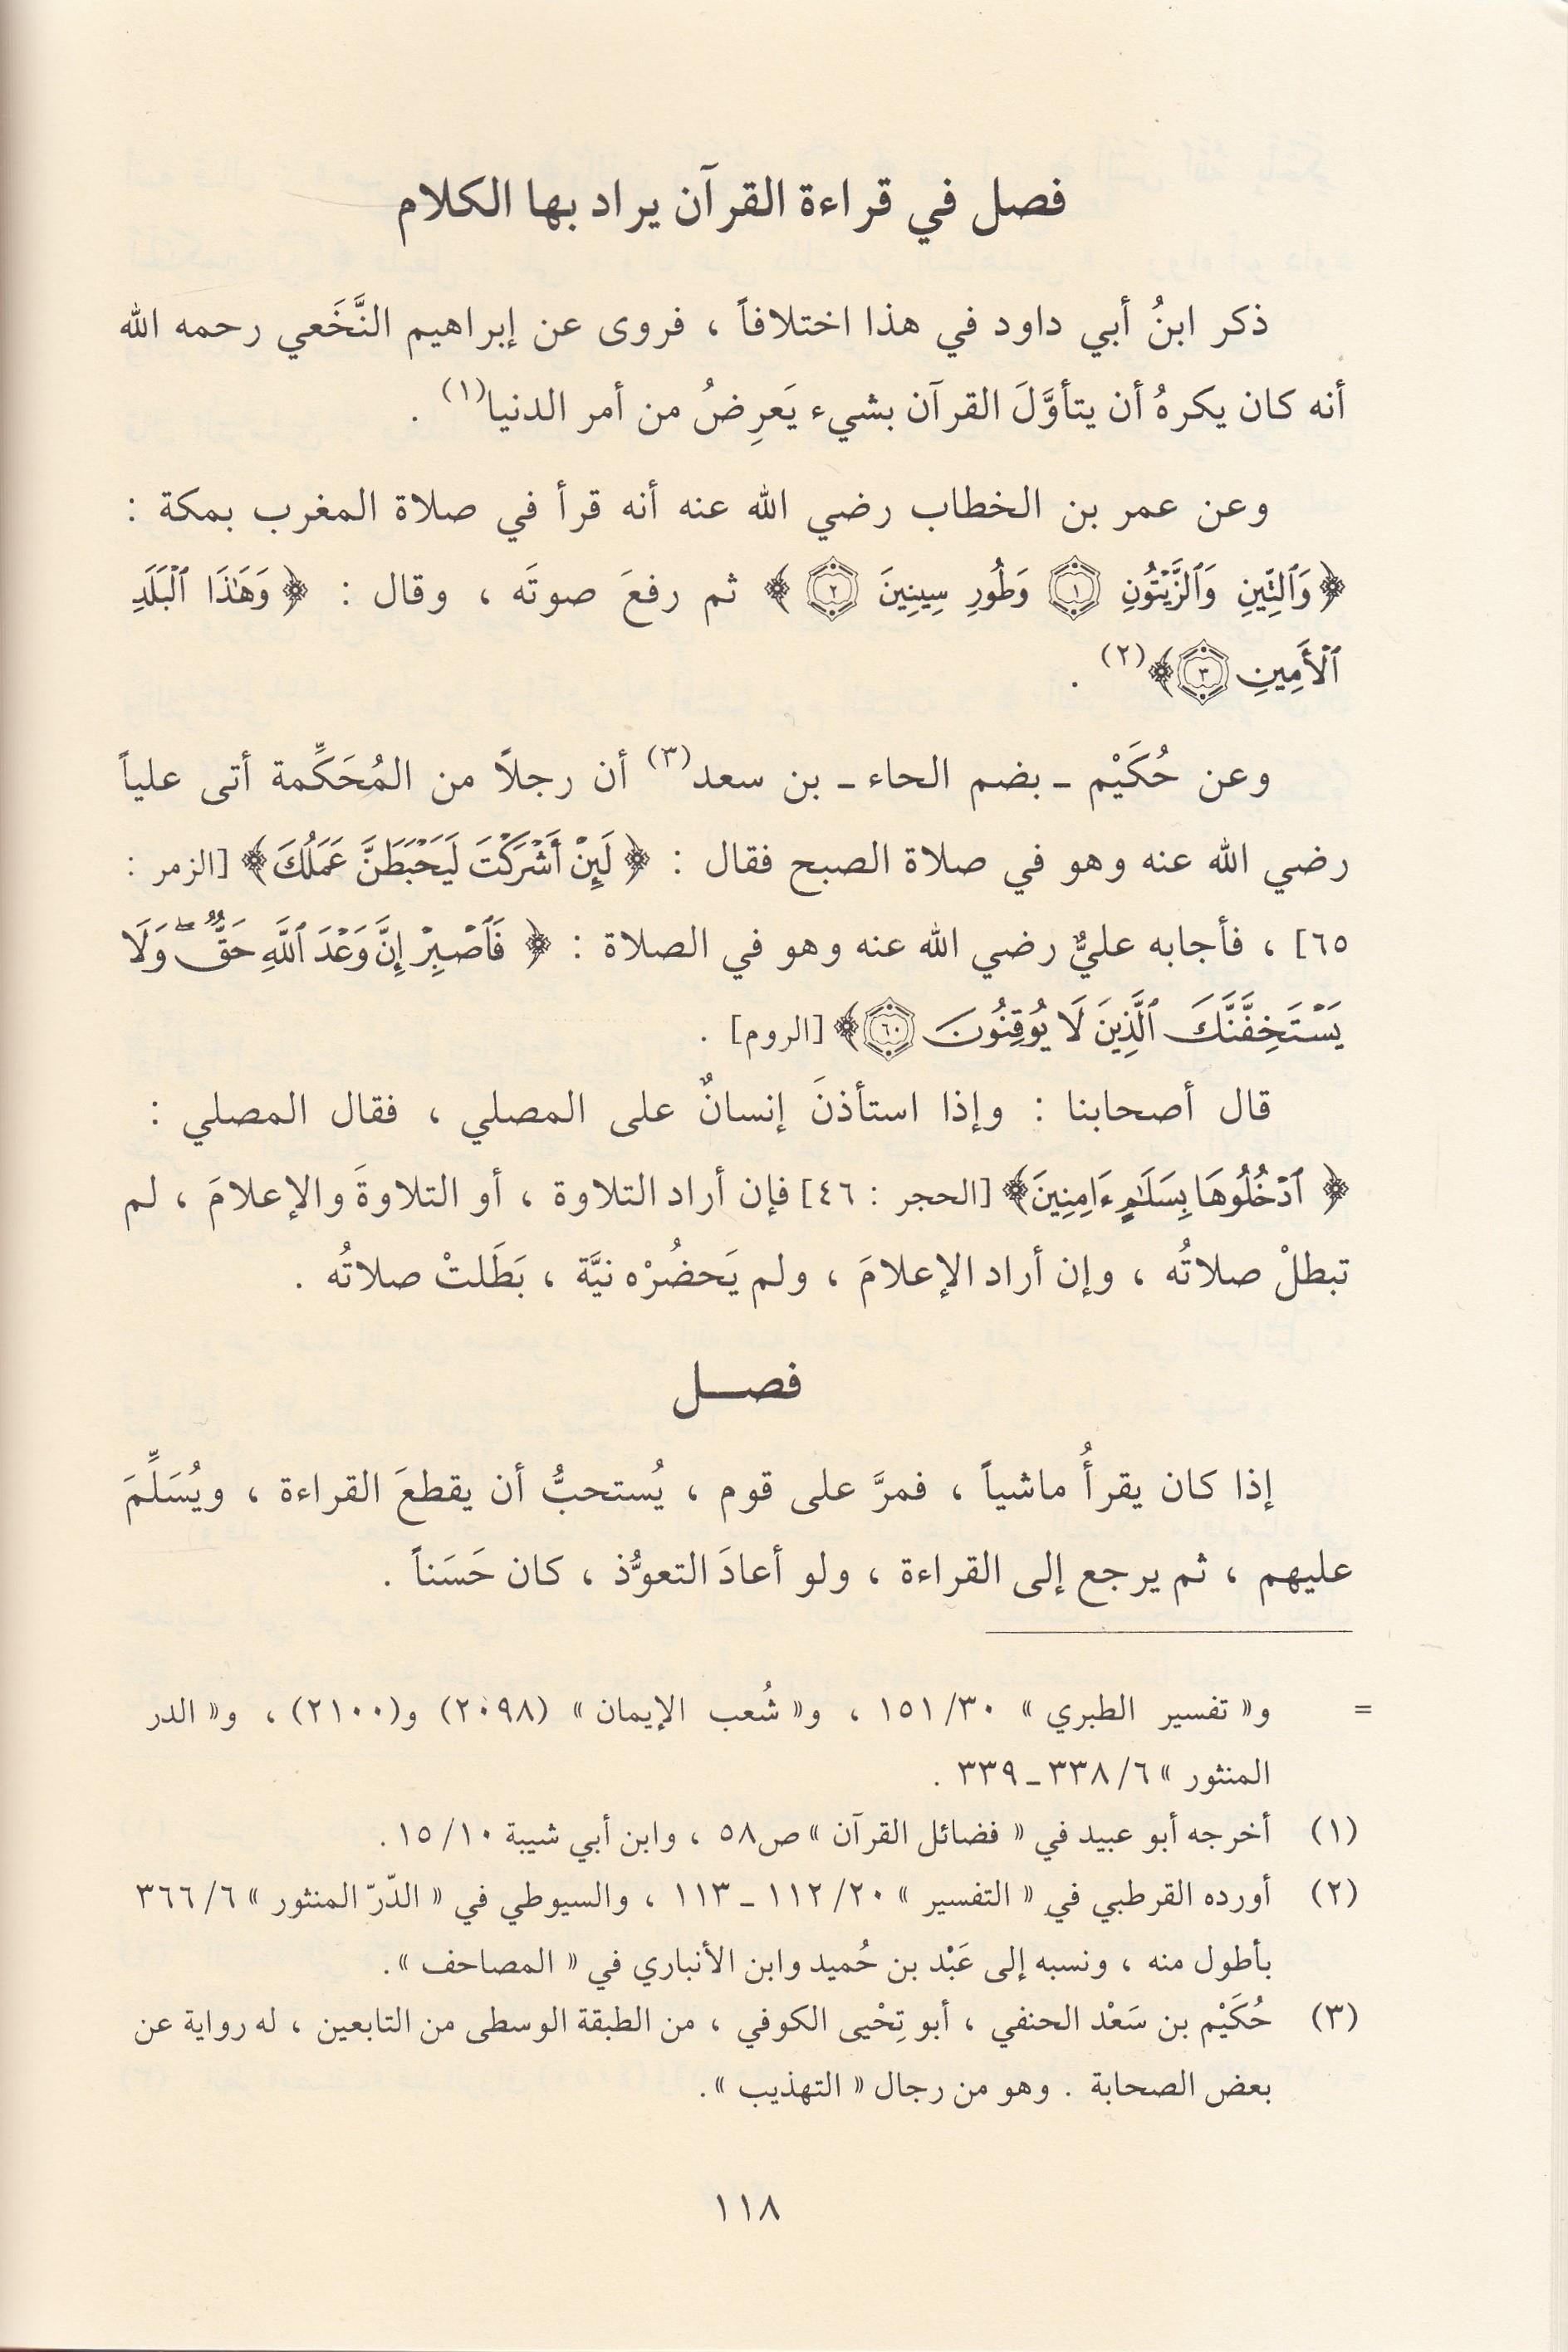 فصل في قراءة القرآن يراد بها الكلام
ذكر ابنُ أبي داود في هذا اختلافاً ، فروى عن إبراهيم النَّخَعي رحمه الله
أنه كان يكرهُ أن يتأوَّلَ القرآن بشيء يَعرِضُ من أمر الدنيا(١) .
وعن عمر بن الخطاب رضي الله عنه أنه قرأ في صلاة المغرب بمكة :
﴿ وَٱلتِّينِ وَٱلزَّيۡتُونِ ١ وَطُورِ سِينِينَ ٢ ﴾ ثم رفعَ صوتَه ، وقال : ﴿ وَهَٰذَا ٱلۡبَلَدِ
ٱلۡأَمِينِ ٣ ﴾(٢) .
وعن حُكَيْم ـ بضم الحاء ـ بن سعد(٣) أن رجلاً من المُحَكِّمة أتى علياً
رضي الله عنه وهو في صلاة الصبح فقال : ﴿ لَئِنۡ أَشۡرَكۡتَ لَيَحۡبَطَنَّ عَمَلُكَ ﴾ [الزمر :
٦٥] ، فأجابه عليٌّ رضي الله عنه وهو في الصلاة : ﴿ فَٱصۡبِرۡ إِنَّ وَعۡدَ ٱللَّهِ حَقٌّۖ وَلَا
يَسۡتَخِفَّنَّكَ ٱلَّذِينَ لَا يُوقِنُونَ ٦٠ ﴾ [الروم] .
قال أصحابنا : وإذا استأذنَ إنسانٌ على المصلي ، فقال المصلي :
﴿ ٱدۡخُلُوهَا بِسَلَٰمٍ ءَامِنِينَ ﴾ [الحجر : ٤٦] فإن أراد التلاوة ، أو التلاوةَ والإعلامَ ، لم
تبطلْ صلاتُه ، وإن أراد الإعلامَ ، ولم يَحضُرْه نيَّة ، بَطَلتْ صلاتُه .
فصـــل
إذا كان يقرأُ ماشياً ، فمرَّ على قوم ، يُستحبُّ أن يقطعَ القراءة ، ويُسَلِّمَ
عليهم ، ثم يرجع إلى القراءة ، ولو أعادَ التعوُّذ ، كان حَسَناً .
= و« تفسير الطبري » ٣٠/ ١٥١ ، و« شُعب الإيمان » (٢٠٩٨) و(٢١٠٠) ، و« الدر
المنثور » ٦/ ٣٣٨ ـ ٣٣٩ .
(١) أخرجه أبو عبيد في « فضائل القرآن » ص٥٨ ، وابن أبي شيبة ١٠/ ١٥ .
(٢) أورده القرطبي في « التفسير » ٢٠/ ١١٢ ـ ١١٣ ، والسيوطي في « الدّرّ المنثور » ٦/ ٣٦٦
بأطول منه ، ونسبه إلى عَبْد بن حُميد وابن الأنباري في « المصاحف » .
(٣) حُكَيْم بن سَعْد الحنفي ، أبو تِحْيى الكوفي ، من الطبقة الوسطى من التابعين ، له رواية عن
بعض الصحابة . وهو من رجال « التهذيب » .
١١٨